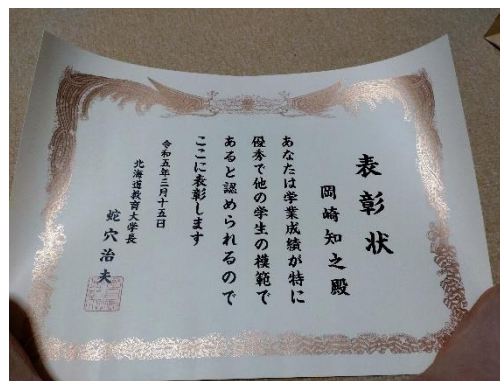 表彰状
岡崎知之殿
あなたは学業成績が特に
優秀で他の学生の模範で
あると認められるので
ここに表彰します
令和五年三月十五日
北海道教育大学長
蛇穴治夫